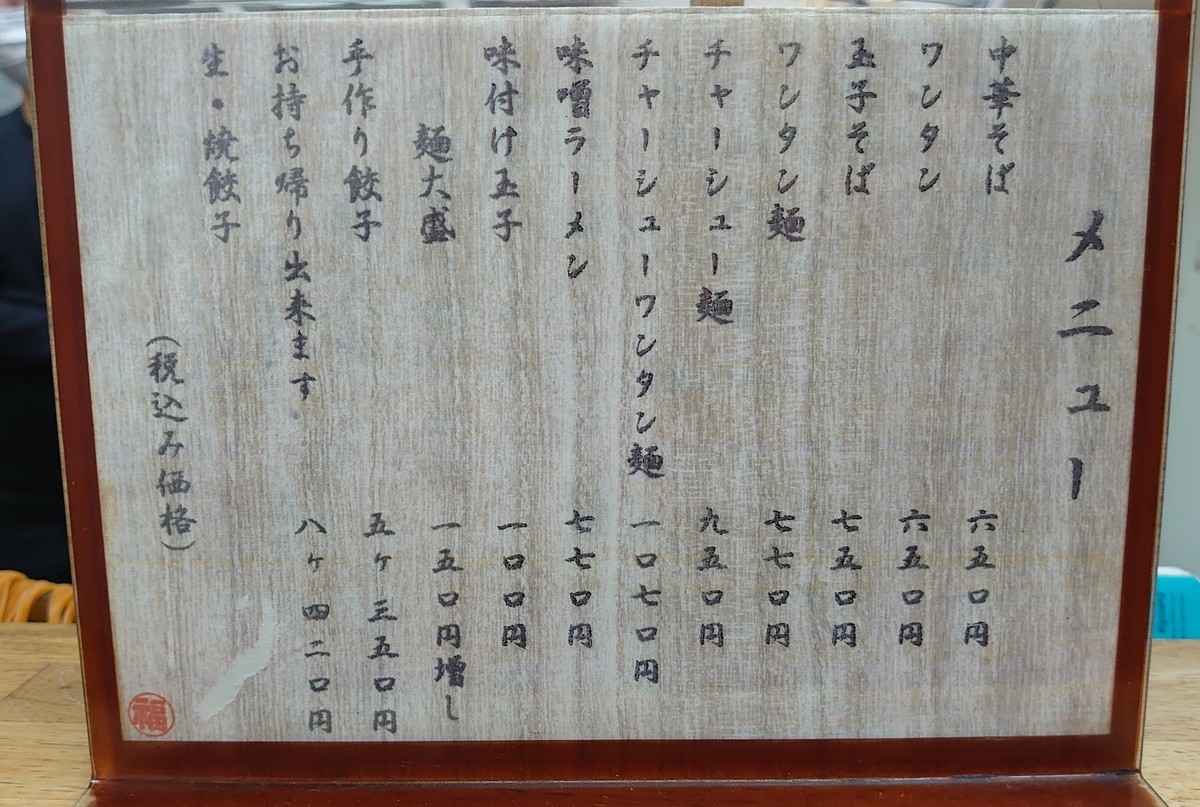 メニュー
中華そば 六五〇円
ワンタン 六五〇円
玉子そば 七五〇円
ワンタン麺 七七〇円
チャーシュー麺 九五〇円
チャーシューワンタン麺 一〇七〇円
味噌ラーメン 七七〇円
味付け玉子 一〇〇円
麺大盛 一五〇円増し
手作り餃子 五ヶ 三五〇円
お持ち帰り出来ます 八ヶ 四二〇円
生・焼餃子
(税込み価格)
福